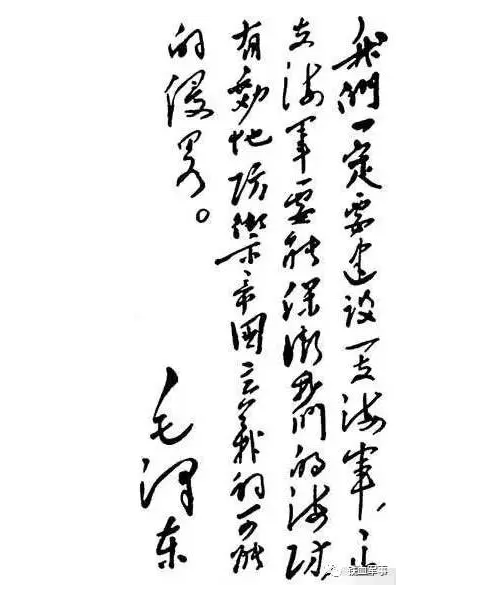 我們一定要建設一支海軍，這
支海軍要能保衛我們的海防，
有効地防禦帝國主義的可能
的侵略。
毛澤東
铁血军事